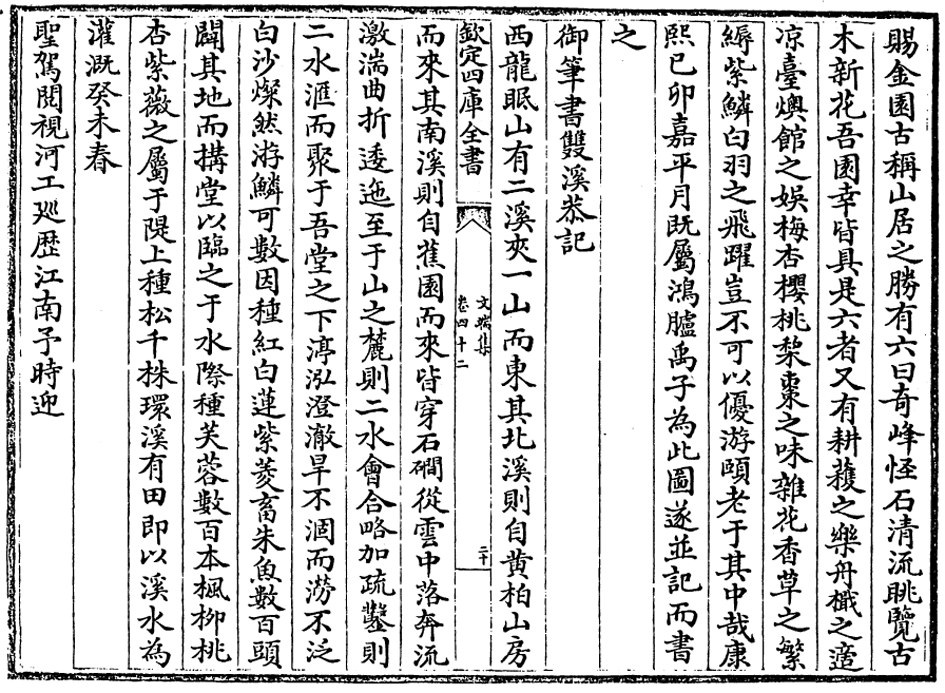 賜金園古稱山居之勝有六曰奇峰怪石清流眺覽古
木新花吾園幸皆具是六者又有耕穫之樂舟檝之適
凉臺燠館之娛梅杏櫻桃棃棗之味雜花香草之繁
縟紫鱗白羽之飛躍豈不可以優游頤老于其中哉康
熙已卯嘉平月既屬鴻臚禹子為此圖遂並記而書
之
御筆書雙溪恭記
西龍眠山有二溪夾一山而東其北溪則自黃柏山房
欽定四庫全書
文端集
卷四十二
二十
而來其南溪則自蕉園而來皆穿石磵從雲中落奔流
激湍曲折逶迤至于山之麓則二水會合略加疏鑿則
二水滙而聚于吾堂之下渟泓澄澈旱不涸而澇不泛
白沙燦然游鱗可數因種紅白蓮紫菱畜朱魚數百頭
闢其地而搆堂以臨之于水際種芙蓉數百本楓栁桃
杏紫薇之屬于隄上種松千株環溪有田即以溪水為
灌溉癸未春
聖駕閱視河工廵歷江南予時迎